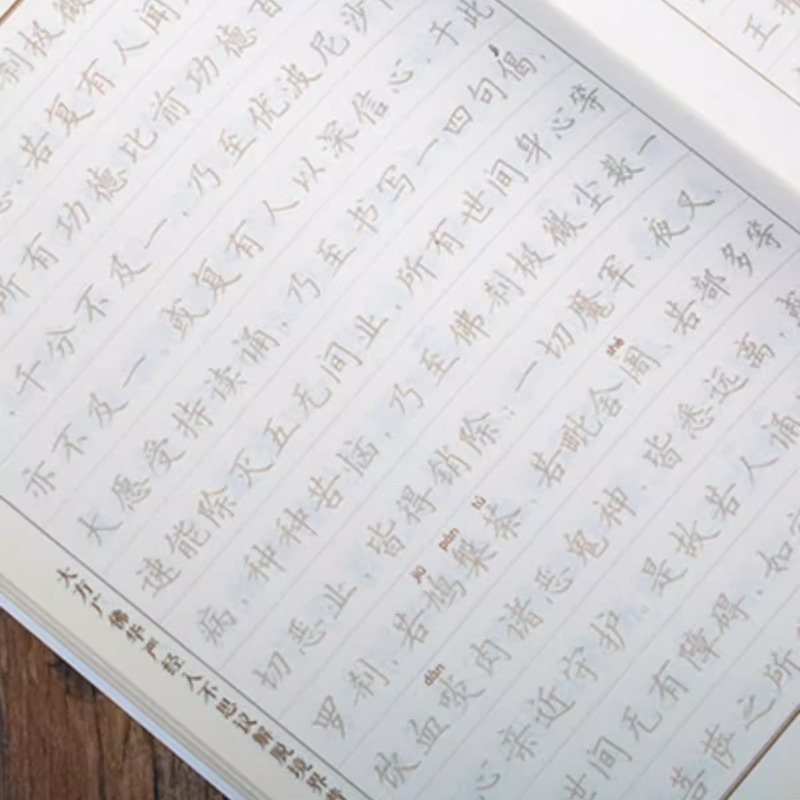 刹极微
心。若复有人闻
所有功德比前功德百
，千分不及一，乃至优波尼沙
亦不及一。或复有人以深信心，于此
大愿受持读诵，乃至书写一四句偈，
速能除灭五无间业，所有世间身心等
病，种种苦恼，乃至佛刹极微尘数一
切恶业，皆得销除；一切魔军、夜叉、
jiū pán tú shé
罗刹、若鸠槃荼、若毗舍阇、若部多等
dàn
饮血啖肉诸恶鬼神，皆悉远离，或
心亲近守护。是故若人诵
世间无有障碍，如空
菩萨之所
大方广佛华严经入不思议解脱境界普
王